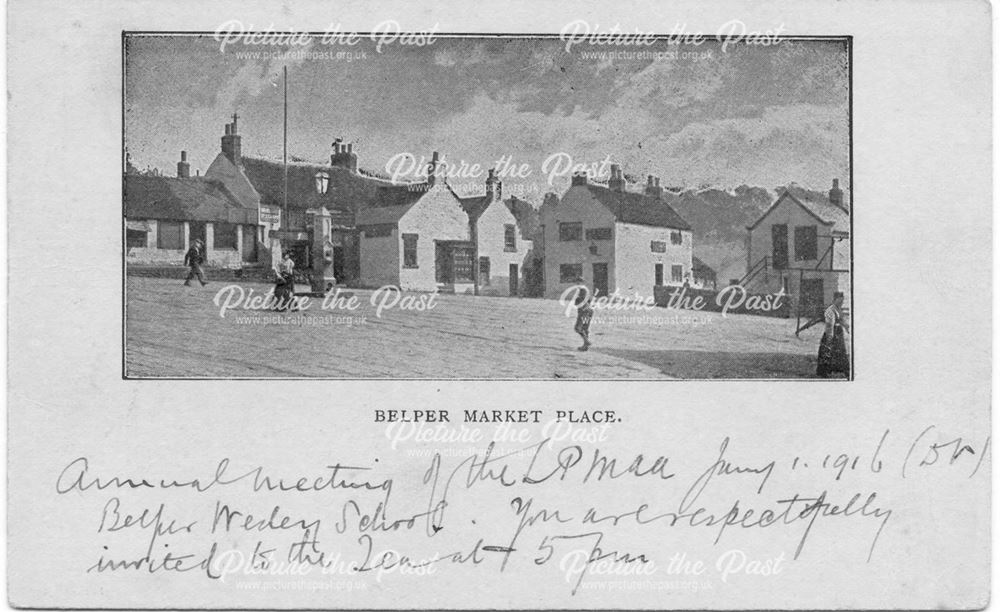 Picture the Past Picture the Past
www.picturethepast.org.uk www.picturethepast.org.uk
Picture the Past
www.picturethepast.org.uk
Picture the Past Picture the Past
www.picturethepast.org.uk www.picturethepast.org.uk
BELPER MARKET PLACE.
Picture the Past
www.picturethepast.org.uk
Annual meeting of the LPMAA Jany 1. 1916
Belper Wesley School. You are respectfully
invited to the Tea at 5 pm
Picture the Past Picture the Past
www.picturethepast.org.uk www.picturethepast.org.uk